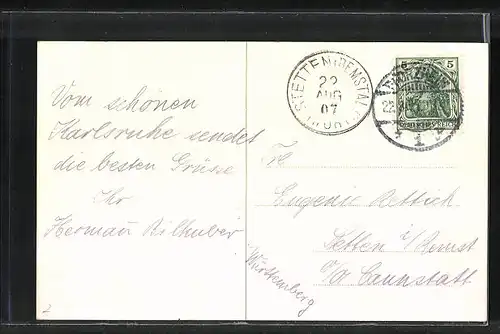 Vom schönen
Karlsruhe sendet
die besten Grüsse
Ihr
Hermann Bilhuber
STETTEN i. REMSTAL
22
AUG
07
WÜRTT.
5 5
DEUTSCHES REICH
22.8
* 1 *
Frl.
Eugenie Rettich
Stetten i/Remst
O/A Cannstatt
Württemberg
2